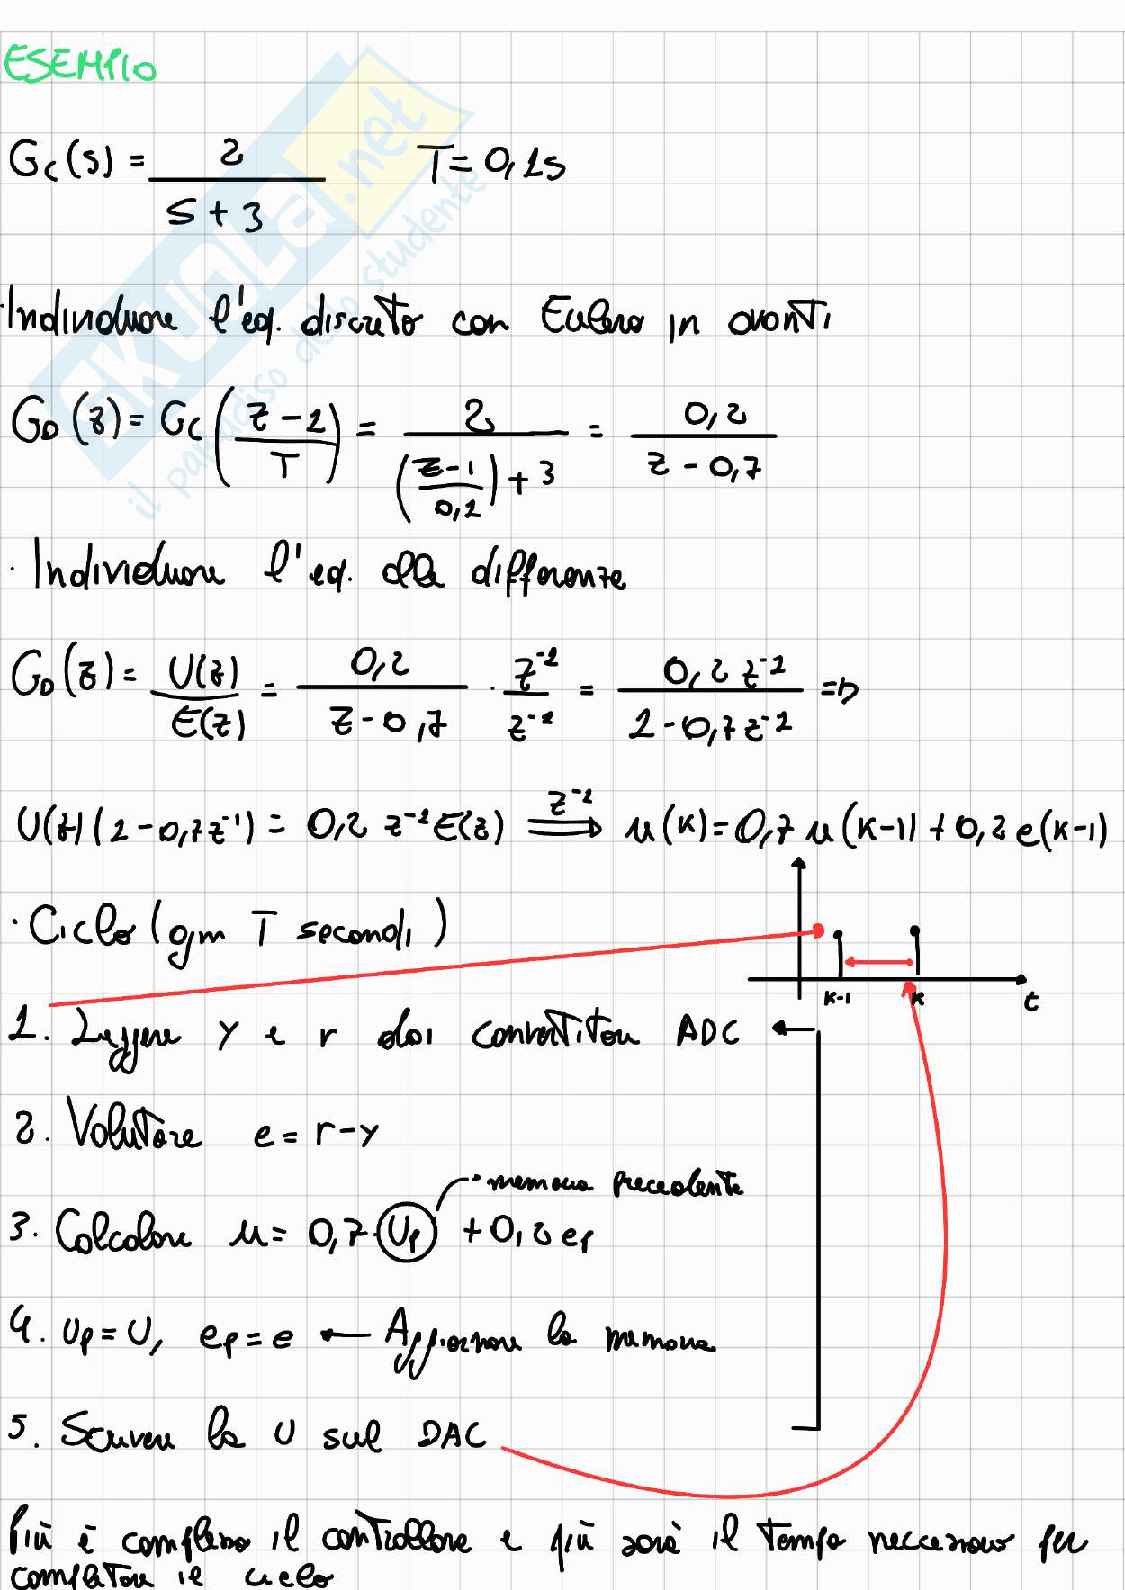 ESEMPIO
Gc(s) = 2 / (s + 3)    T = 0,1s
·Individuare l'eq. discreto con Eulero in avanti
GD(z) = Gc((z - 1) / T) = 2 / (((z - 1) / 0,1) + 3) = 0,2 / (z - 0,7)
· Individuare l'eq. alle differenze
GD(z) = U(z) / E(z) = 0,2 / (z - 0,7) · z⁻¹ / z⁻¹ = 0,2 z⁻¹ / (1 - 0,7 z⁻¹) =>
U(z)(1 - 0,7 z⁻¹) = 0,2 z⁻¹ E(z) ⟹ z⁻¹ u(k) = 0,7 u(k-1) + 0,2 e(k-1)
· Ciclo (ogni T secondi)
k-1 k t
1. Leggere y e r dai convertitori ADC ←
2. Valutare e = r - y
memoria precedente
3. Calcolare u = 0,7 · Up + 0,2 ep
4. Up = U, ep = e ← Aggiornare la memoria
5. Scrivere la U sul DAC
Più è complesso il controllore e più sarà il tempo neccessario per
completare il ciclo
SKUOLA.net
il paradiso dello studente